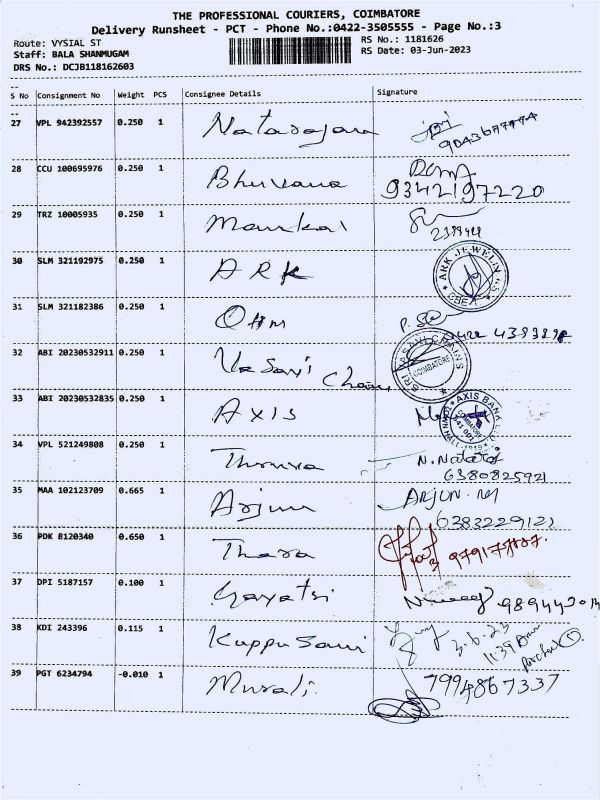 THE PROFESSIONAL COURIERS, COIMBATORE
Delivery Runsheet - PCT - Phone No.:0422-3505555 - Page No.:3
Route: VYSIAL ST
RS No.: 1181626
Staff: BALA SHANMUGAM
RS Date: 03-Jun-2023
DRS No.: DCJB118162603
S No Consignment No Weight PCS Consignee Details Signature
27 VPL 942392557 0.250 1 Natarajan
28 CCU 100695976 0.250 1 Bhuvana 9342197220
29 TRZ 10005935 0.250 1
30 SLM 321192975 0.250 1 ARK ARK JEWELLERS CBE-1
31 SLM 321182386 0.250 1 Ohm
32 ABI 20230532911 0.250 1 Vasavi Chains SRI VASAVI CHAINS COIMBATORE
33 ABI 20230532835 0.250 1 AXIS AXIS BANK LTD.
34 VPL 521249808 0.250 1 N. Nataraj
6380825921
35 MAA 102123709 0.665 1 Arjun ARJUN. M
6383229121
36 PDK 8120340 0.650 1 Thara
37 DPI 5187157 0.100 1 Gayatri
38 KDI 243396 0.115 1 Kuppusami 3.6.23
11:39
39 PGT 6234794 -0.010 1 Murali. 7994867337